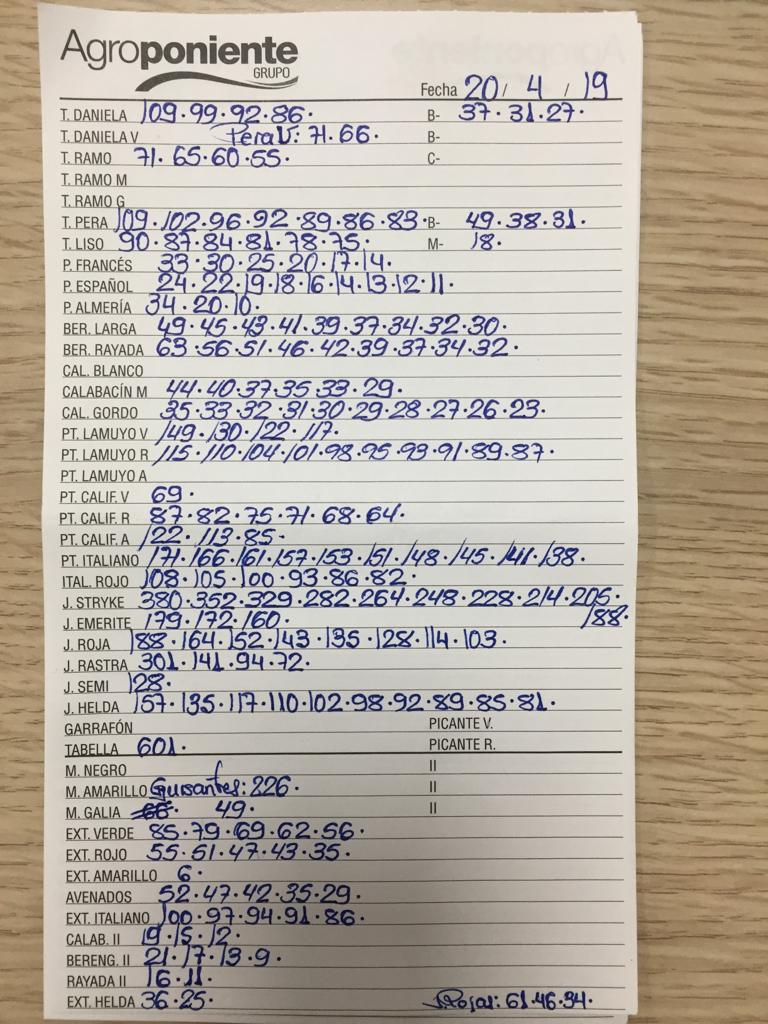 Agroponiente
GRUPO
Fecha 20/ 4 / 19
T. DANIELA 109.99.92.86. B- 37.31.27.
T. DANIELA V Pera V: 71.66. B-
T. RAMO 71.65.60.55. C-
T. RAMO M
T. RAMO G
T. PERA 109.102.96.92.89.86.83. B- 49.38.31.
T. LISO 90.87.84.81.78.75. M- 18.
P. FRANCÉS 33.30.25.20.17.14.
P. ESPAÑOL 24.22.19.18.16.14.13.12.11.
P. ALMERÍA 34.20.10.
BER. LARGA 49.45.43.41.39.37.34.32.30.
BER. RAYADA 63.56.51.46.42.39.37.34.32.
CAL. BLANCO
CALABACÍN M 44.40.37.35.33.29.
CAL. GORDO 35.33.32.31.30.29.28.27.26.23.
PT. LAMUYO V 149.130.122.117.
PT. LAMUYO R 115.110.104.101.98.95.93.91.89.87.
PT. LAMUYO A
PT. CALIF. V 69.
PT. CALIF. R 87.82.75.71.68.64.
PT. CALIF. A 122.113.85.
PT. ITALIANO 171.166.161.157.153.151.148.145.141.138.
ITAL. ROJO 108.105.100.93.86.82.
J. STRYKE 380.352.329.282.264.248.228.214.205.
J. EMERITE 179.172.160. 188.
J. ROJA 188.164.152.143.135.128.114.103.
J. RASTRA 301.141.94.72.
J. SEMI 128.
J. HELDA 157.135.117.110.102.98.92.89.85.81.
GARRAFÓN PICANTE V.
TABELLA 601. PICANTE R.
M. NEGRO II
M. AMARILLO Guisantes: 226. II
M. GALIA 66. 49. II
EXT. VERDE 85.79.69.62.56.
EXT. ROJO 55.51.47.43.35.
EXT. AMARILLO 6.
AVENADOS 52.47.42.35.29.
EXT. ITALIANO 100.97.94.91.86.
CALAB. II 19.15.12.
BERENG. II 21.17.13.9.
RAYADA II 16.11.
EXT. HELDA 36.25. J.Rojas: 61.46.34.